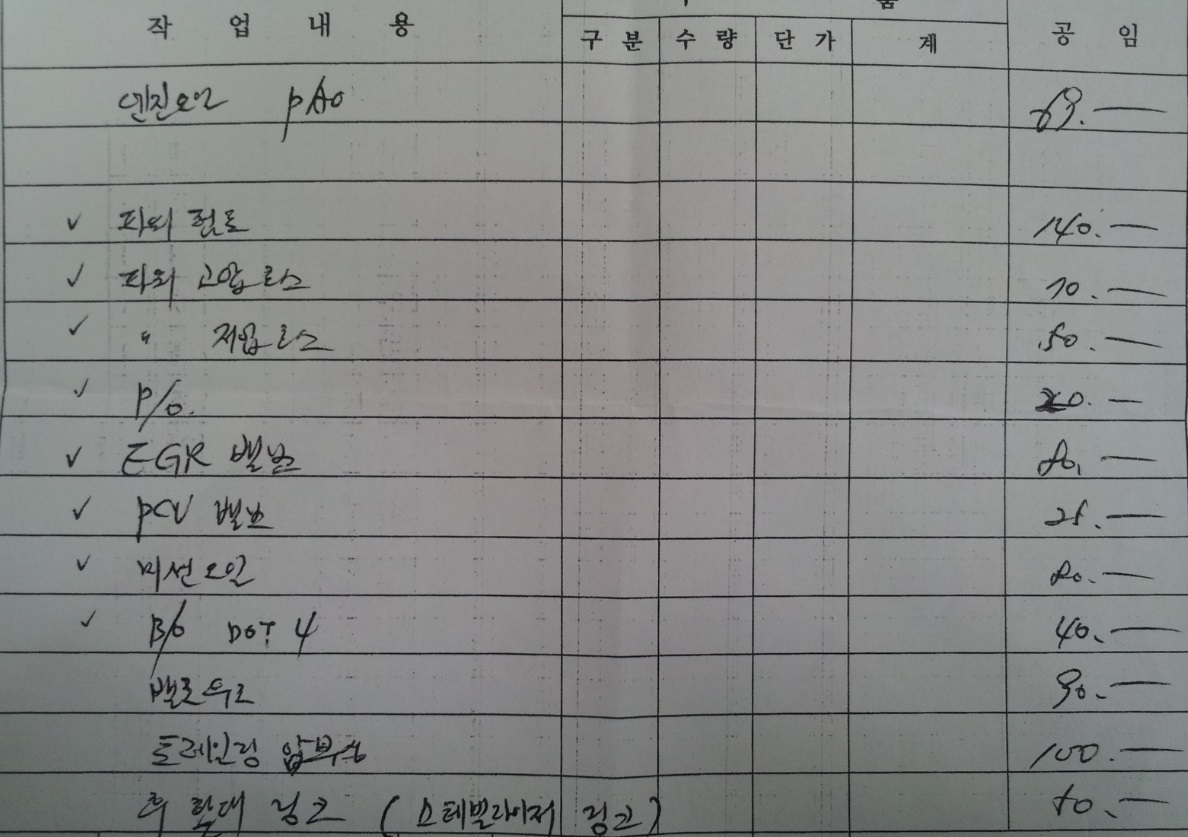 작 업 내 용 품 공 임
구 분 수 량 단 가 계
엔진오일 PAO
✓ 파워 펌프 140.—
✓ 파워 고압 호스 70.—
✓ " 저압 호스 50.—
✓ P/O. 20.—
✓ EGR 밸브 80.—
✓ PCV 밸브 25.—
✓ 미션오일 80.—
✓ B/O DOT 4 40.—
벨로우즈 90.—
트레일링 암부싱 100.—
후 활대 링크 (스테빌라이저 링크)